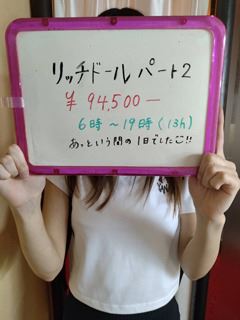 リッチドール パート2
¥ 94,500—
6時～19時(13h)
あっという間の1日でした!!